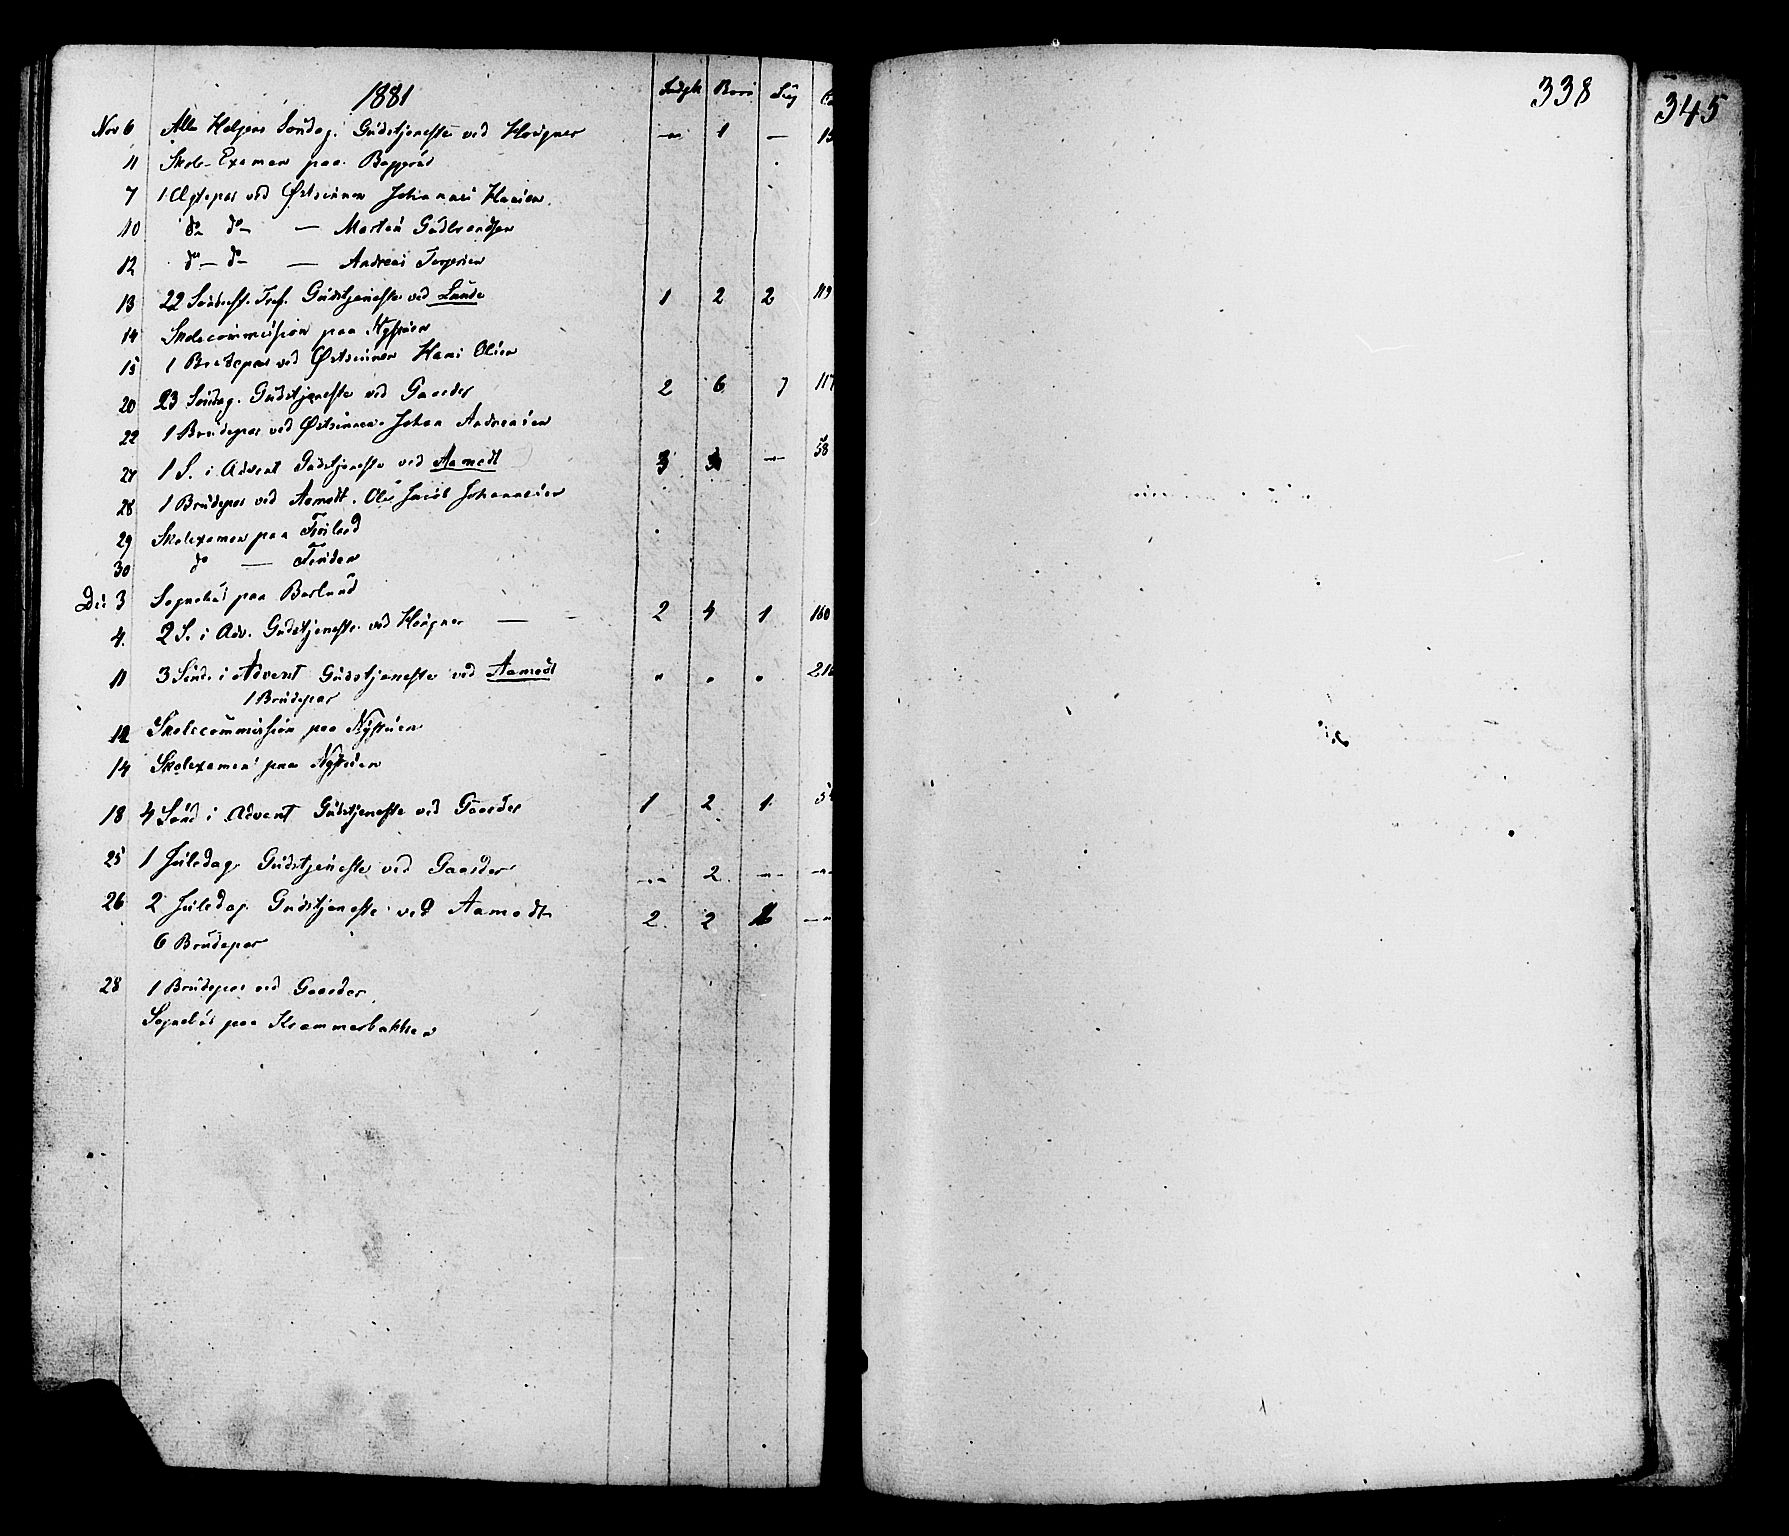 1881
Nov 6 Alle Helgens Søndag. Gudstjeneste ved Hougner — 1 —
11 Skole-Examen paa
7 1 Ægtepar ved Østsinnen Johannes Hansen
10 do do — Martin Gudbrandsen
12 do — do — Andreas Torgersen
13 22 Søndag e. Tref. Gudstjeneste ved Lunde 1 2 2 119
14 Skolecommission paa Nystuen
15 1 Brudepar ved Østsinnen Hans Olsen
20 23 Søndag. Gudstjeneste ved Gaarder 2 6 7 117
22 1 Brudepar ved Østsinnen. Johan Andreasen
27 1 S. i Advent Gudstjeneste ved Aamodt 3 — 58
28 1 Brudepar ved Aamodt. Ole Jacob Johannesen
29 Skolexamen paa
30 do —
Dec 3 Sognebud paa
4. 2 S. i Adv. Gudstjeneste ved Hougner — 2 4 1 160
11 3 Sønd. i Advent Gudstjeneste ved Aamodt " " " 216
1 Brudepar
12 Skolecommission paa Nystuen
14 Skolexamen paa Nystuen
18 4 Sønd i Advent Gudstjeneste ved Gaarder 1 2 1.
25 1 Juledag. Gudstjeneste ved Gaarder — 2 — —
26 2 Juledag. Gudstjeneste ved Aamodt 2 2 —
6 Brudepar
28 1 Brudepar ved Gaarder
Sognebud paa Krammerbakken
338
345